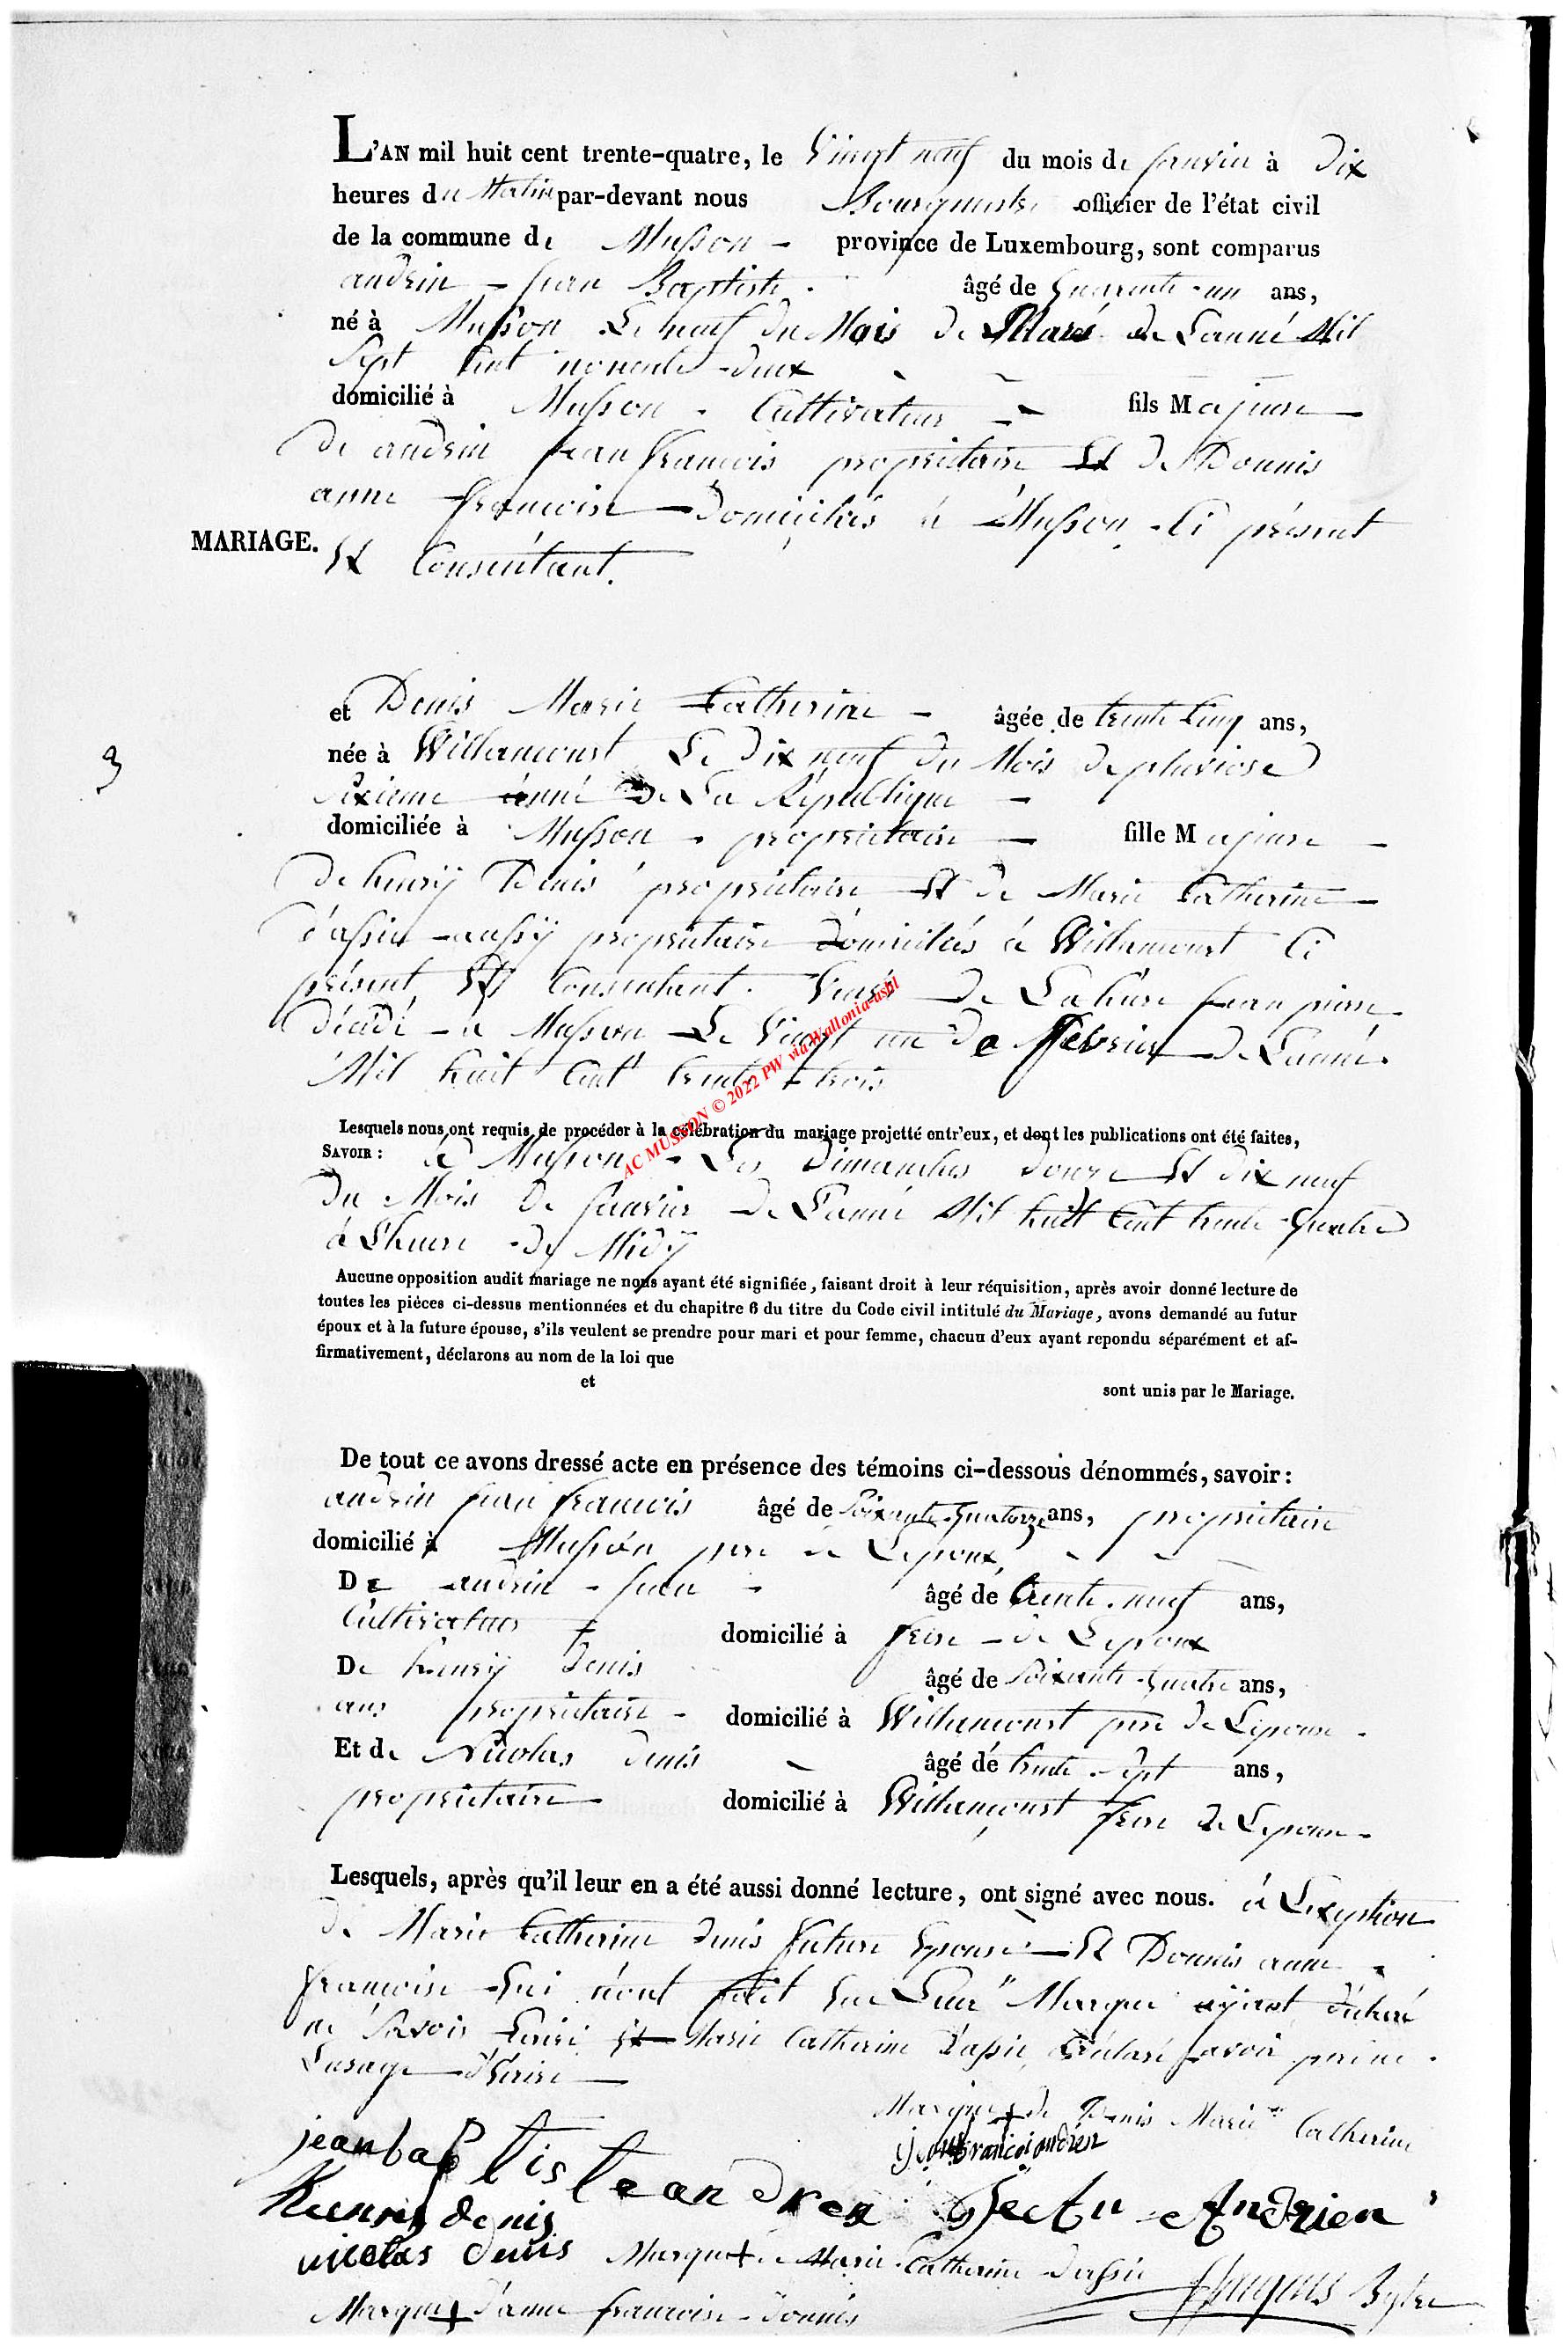 L'AN mil huit cent trente-quatre, le Vingt neuf du mois de Janvier à Dix
heures du Matin par-devant nous Bourgmestre officier de l'état civil
de la commune de Musson - province de Luxembourg, sont comparus
andrin - Jean Baptiste - âgé de Quarente-un ans,
né à Musson Le neuf du Mois de Mars de L'anné Mil
Sept Cent nonente-deux
domicilié à Musson - Cultivateur - fils Majeure
De andrin Jean francois proprietaire Et De Donnis
anne francoise - Domiciliés à Musson - Ci présent
MARIAGE.
Et Consentant.
et Denis Marie Catherine - âgée de trente Cinq ans,
née à Willancourt Le Dix neuf du Mois De pluviose
Sixieme anné De La République -
3
domiciliée à Musson - proprietaire - fille Majeure -
De henrÿ Denis proprietaire Et De Marie Catherine
d'assie aussÿ proprietaire Domiciliés à Willancourt Ci
présent Et Consentant. Veuve De Jean pierre
Décidé à Musson Le Vingt un De fevrier De L'anné
Mil huit Cent trente-trois
AC MUSSON © 2022 PW via Wallonia-asbl
Lesquels nous ont requis de procéder à la célébration du mariage projetté entr'eux, et dont les publications ont été faites,
SAVOIR : à Musson - Les Dimanches Douze Et Dix neuf
Du Mois De Janvier De L'anné Mil huit Cent trente-Quatre
à L'heure De Midÿ
Aucune opposition audit mariage ne nous ayant été signifiée, faisant droit à leur réquisition, après avoir donné lecture de
toutes les pièces ci-dessus mentionnées et du chapitre 6 du titre du Code civil intitulé du Mariage, avons demandé au futur
époux et à la future épouse, s'ils veulent se prendre pour mari et pour femme, chacun d'eux ayant repondu séparément et af-
firmativement, déclarons au nom de la loi que
et
sont unis par le Mariage.
De tout ce avons dressé acte en présence des témoins ci-dessous dénommés, savoir :
andrin Jean francois âgé de Soixante-Quatorze ans, proprietaire
domicilié à Musson pere de Lepoux
De andrin - Jean - âgé de trente-neuf ans,
Cultivateur domicilié à frere - de Lepoux
De henrÿ Denis âgé de Soixante-Quatre ans,
ans proprietaire - domicilié à Willancourt pere de Lepouse -
Et de Nicolas denis âgé de trente-Sept ans,
proprietaire domicilié à Willancourt frere de Lepouse -
Lesquels, après qu'il leur en a été aussi donné lecture, ont signé avec nous. à Lexeption
De Marie Catherine denis future Epouse Et Donnis anne
francoise Qui n'ont fait Que Leur Marque aÿant déclaré
ne Savoir Ecrire Et Marie Catherine d'assie déclaré avoir
L'usage d'Ecrire
Marque + de Denis Marie Catherine
jean francoi andrien
jean baptiste andrien Jean Andrien
henrij denis
nicolas denis Marque + de Marie Catherine dassie
Marque + d'anne francoise - donnis